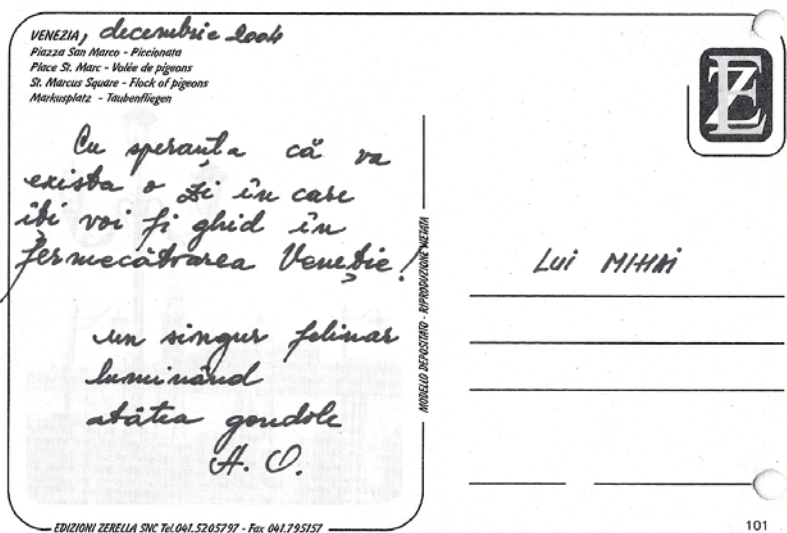 VENEZIA, decembrie 2004
Piazza San Marco - Piccionata
Place St. Marc - Volée de pigeons
St. Marcus Square - Flock of pigeons
Markusplatz - Taubenfliegen
Cu speranța că va
exista o zi în care
îți voi fi ghid în
fermecătoarea Veneție!
un singur felinar
luminând
atâtea gondole
A. O.
EZ
Lui MIHAI
MODELLO DEPOSITATO - RIPRODUZIONE VIETATA
EDIZIONI ZERELLA SNC Tel.041.5205797 - Fax 041.795157
101